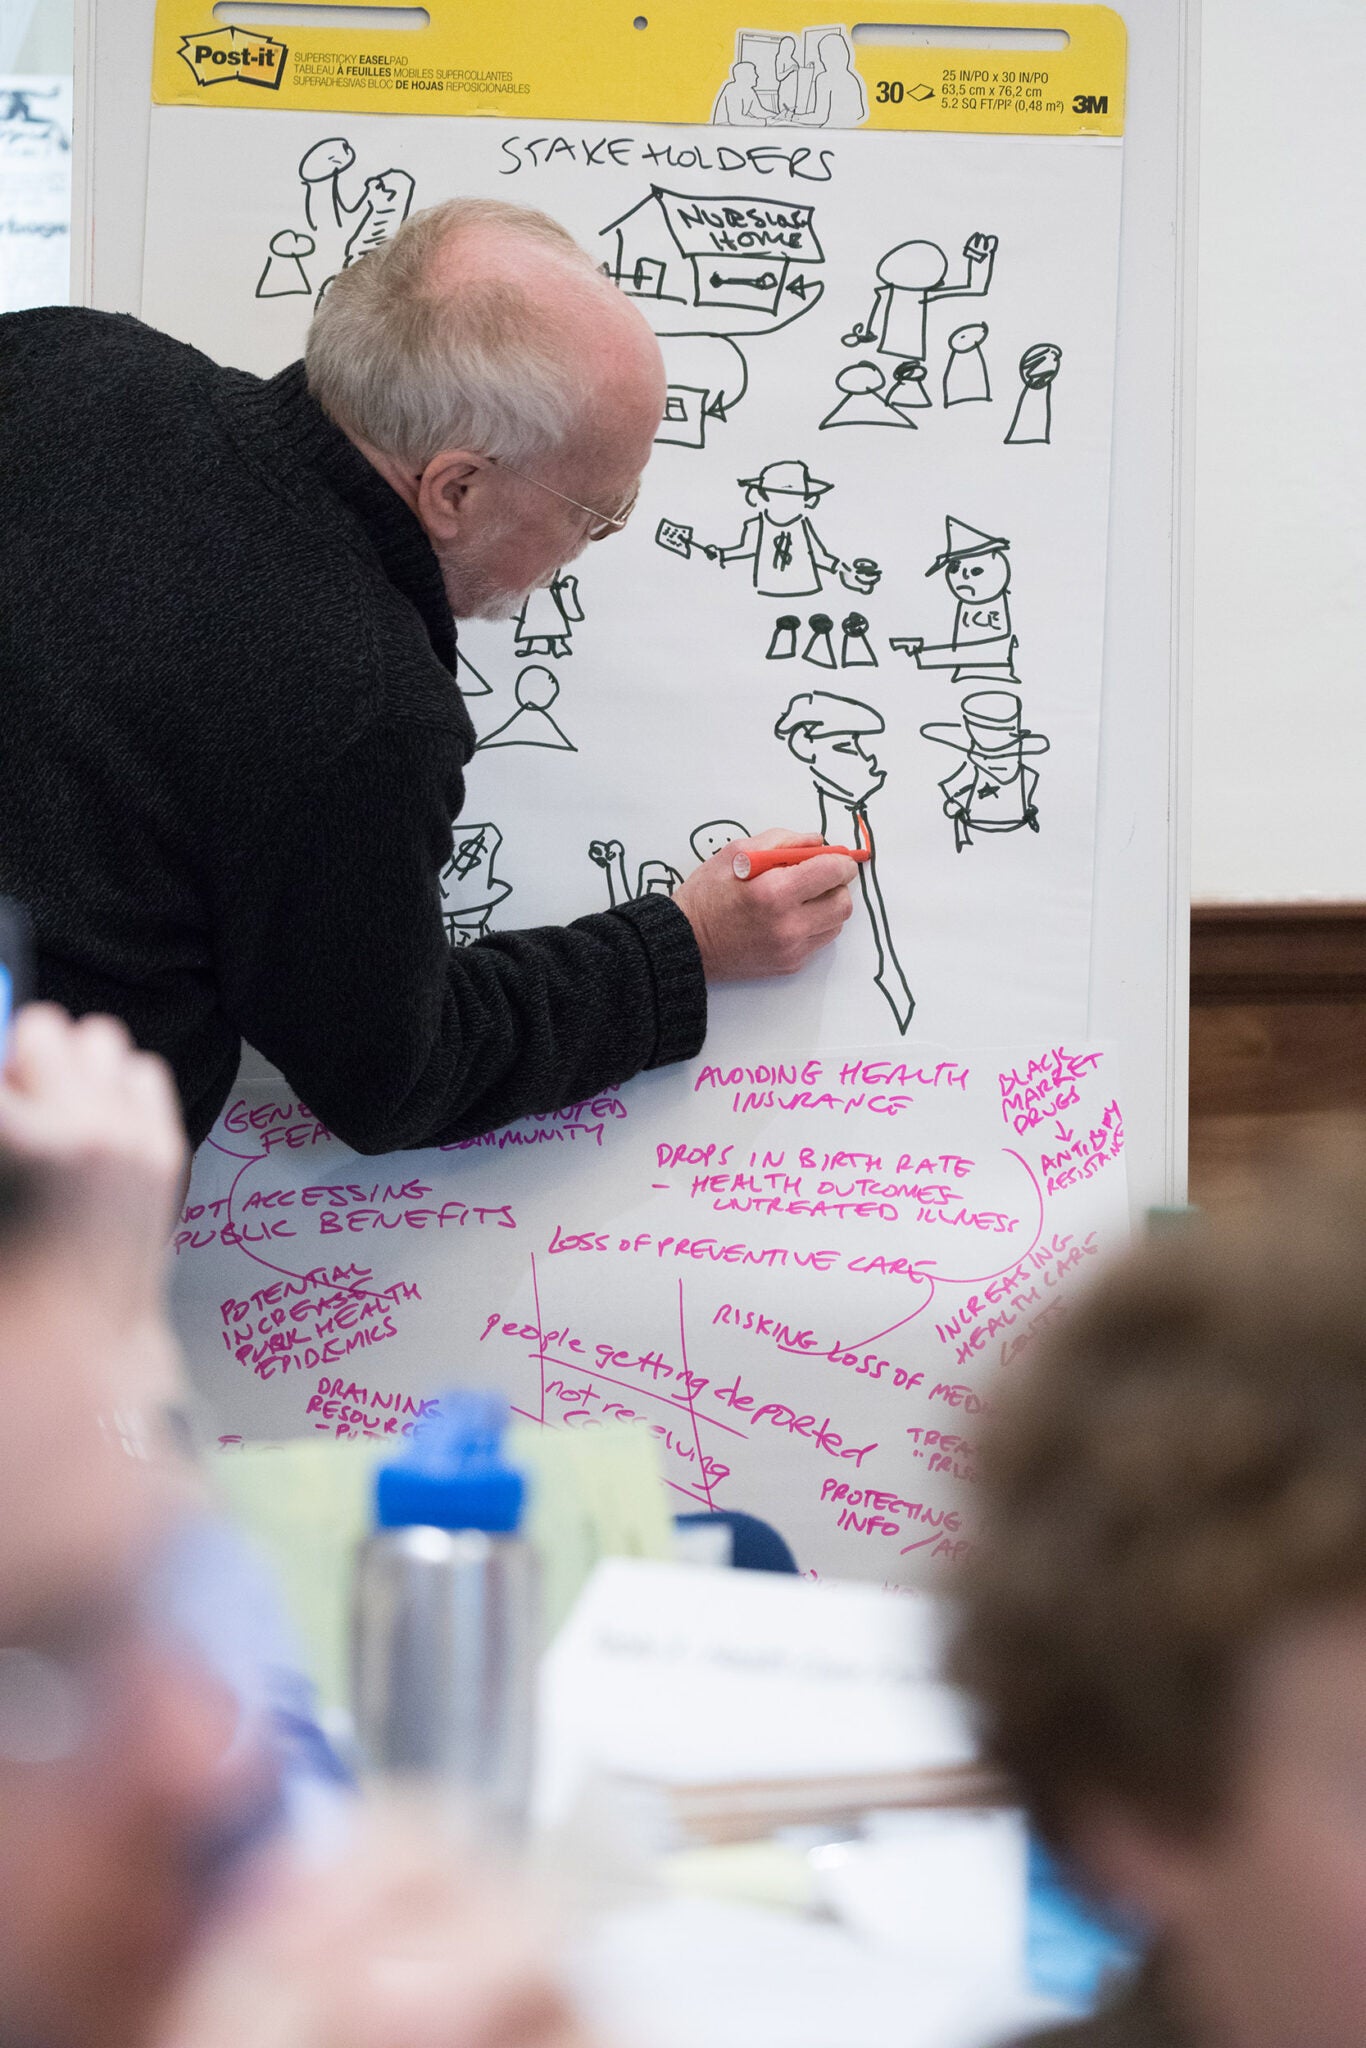 Post-it
SUPERSTICKY EASELPAD
TABLEAU À FEUILLES MOBILES SUPERCOLLANTES
SUPERADHESIVAS BLOC DE HOJAS REPOSICIONABLES
30
25 IN/PO x 30 IN/PO
63,5 cm x 76,2 cm
5.2 SQ FT/PI² (0,48 m²)
3M
STAKEHOLDERS
HOME
$
ICE
$
AVOIDING HEALTH
INSURANCE
BLACK
MARKET
DRUGS
RESISTANCE
GENE
FEA
COMMUNITY
DROPS IN BIRTH RATE
- HEALTH OUTCOMES
UNTREATED ILLNESS
NOT ACCESSING
PUBLIC BENEFITS
LOSS OF PREVENTIVE CARE
INCREASING
HEALTH CARE
POTENTIAL
INCREASE
HEALTH
EPIDEMICS
RISKING LOSS OF MEDI
people getting deported
not receiving
DRAINING
RESOURCE
TREA
"PRIS
PROTECTING
INFO / AP